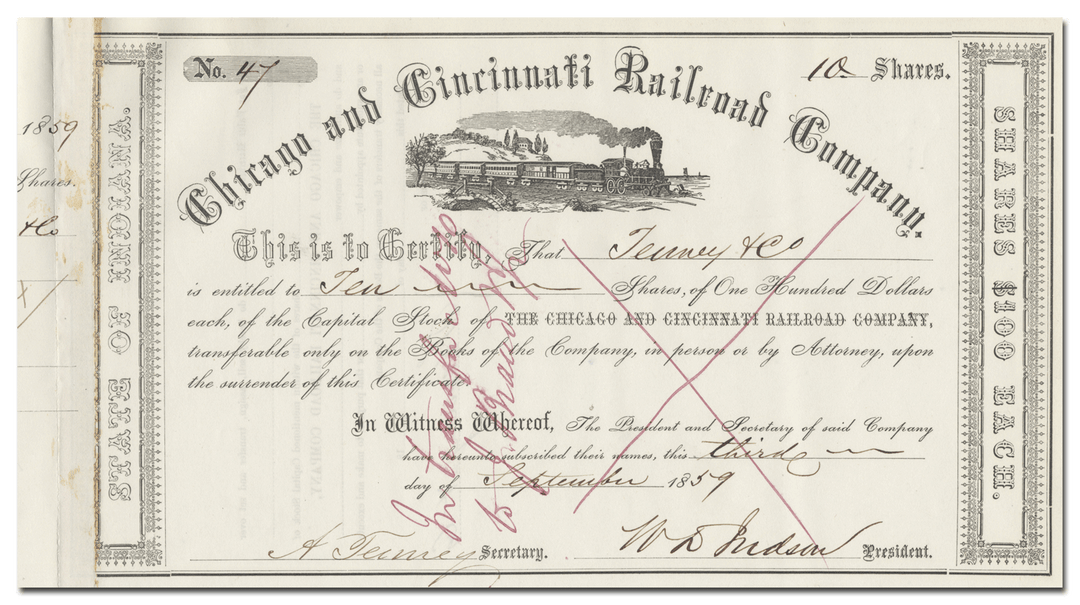 1859
Shares.
& Co
STATE OF INDIANA.
No. 47
10 Shares.
Chicago and Cincinnati Railroad Company.
This is to Certify, That Tenney & Co
is entitled to Ten Shares, of One Hundred Dollars
each, of the Capital Stock of THE CHICAGO AND CINCINNATI RAILROAD COMPANY,
transferable only on the Books of the Company, in person or by Attorney, upon
the surrender of this Certificate
In Witness Whereof, The President and Secretary of said Company
have hereunto subscribed their names, this third
day of September 1859
A Tenney Secretary.
W D Judson President.
SHARES $100 EACH.
to